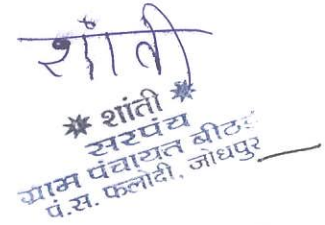 शांती
✷ शांती ✷
सरपंच
ग्राम पंचायत
पं.स. फलोदी, जोधपुर